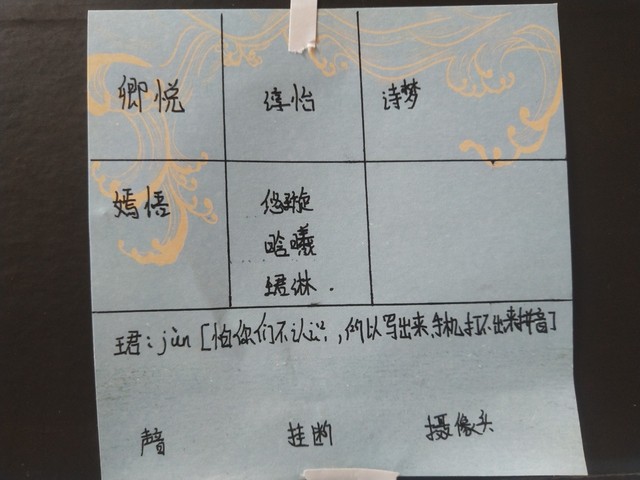 卿悦 淳怡 诗梦
嫣悟 悠璇
晗曦
珺淋.
珺:jùn [怕你们不认识,所以写出来,手机打不出来拼音]
声音 挂断 摄像头